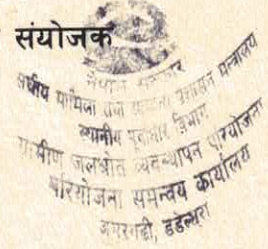 संयोजक
नेपाल सरकार
संघीय मामिला तथा सामान्य प्रशासन मन्त्रालय
स्थानीय पूर्वाधार विभाग
ग्रामीण जलश्रोत व्यवस्थापन परियोजना
परियोजना समन्वय कार्यालय
अमरगढी, डडेल्धुरा